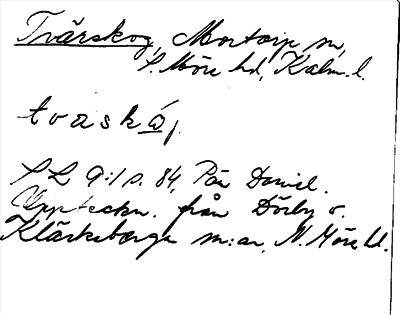 Tvärskog, Mortorp sn,
S. Möre hd, Kalm. l.
tvaskåj
SL 9:1 s. 84, Pär Daniel.
Uppteckn. från Dörby o.
Kläckeberga sn:ar, N. Möre hd.